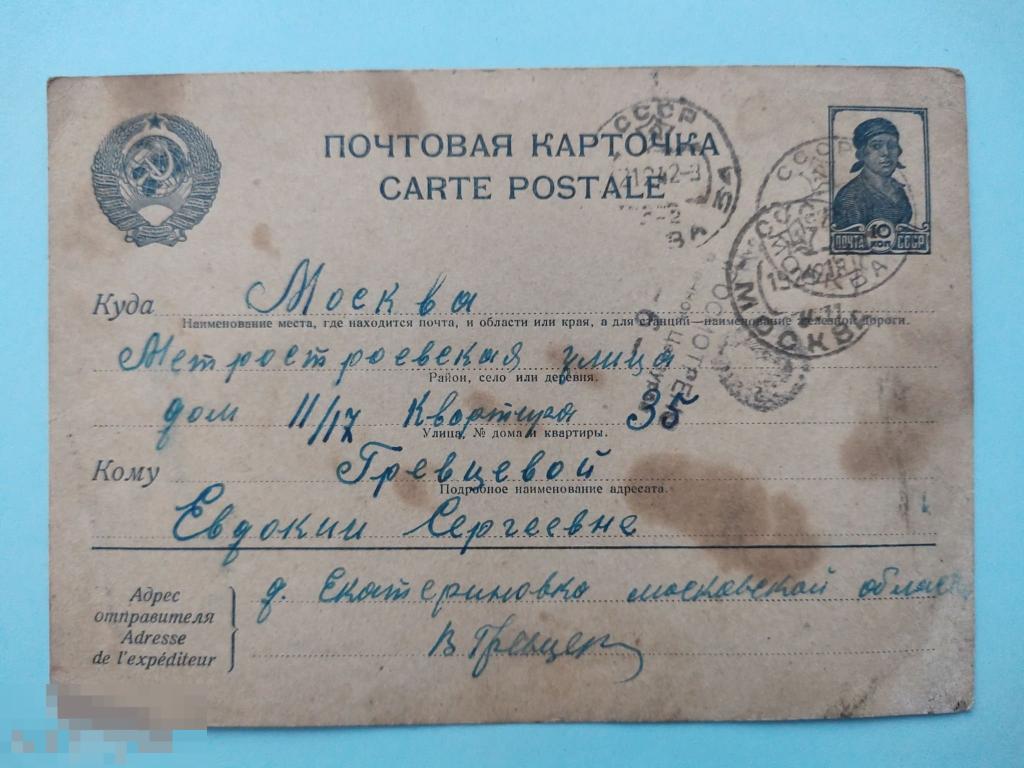 ПОЧТОВАЯ КАРТОЧКА
CARTE POSTALE
СССР
СССР
ПОЧТА 10 КОП СССР
МОСКВА
Куда Москва
Наименование места, где находится почта, и области или края, а для станций—наименование железной дороги.
Метростроевская улица
Район, село или деревня.
дом 11/17 Квартира 35
Улица, № дома и квартиры.
Кому Гревцевой
Подробное наименование адресата.
Евдокии Сергеевне
Адрес
отправителя
Adresse
de l'expéditeur
д. Екатериновка московской област